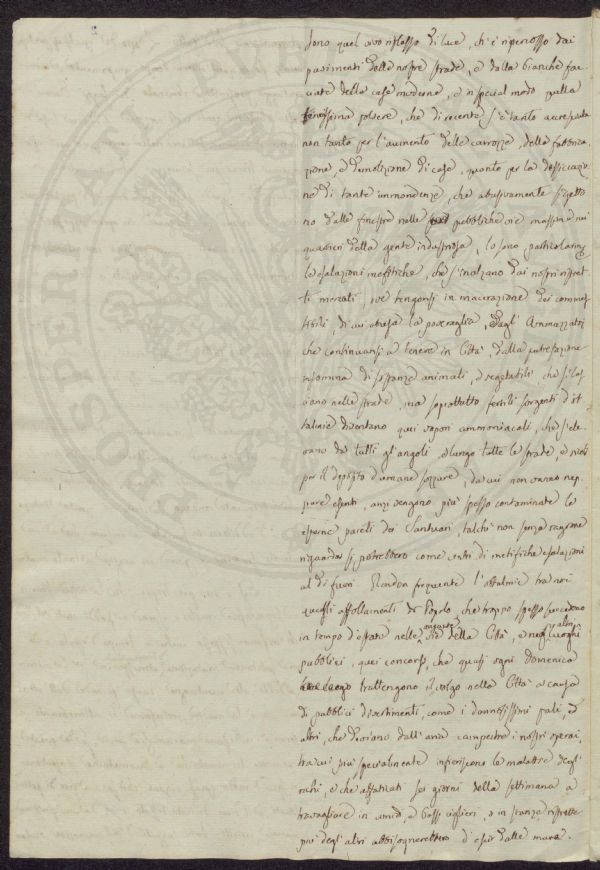 sono quel vivo riflesso di luce, ch'è ripercosso dai
pavimenti delle nostre strade, e dalle bianche fac
ciate delle case moderne, e in special modo quella
tenuissima polvere, che di recente s'è tanto accresciuta
non tanto per l'aumento delle carrozze, della fabbrica
zione, e demolizione di case, quanto per la dissiccazio
ne di tante immondezze, che abusivamente si getta
no dalle finestre nelle pubbliche vie massime nei
quartieri della gente industriosa, lo sono particolarm.e
le esalazioni mefitiche, che s'inalzano dai nostri ristret
ti mercati, ove tengonsi in macerazione dei commes
tibili, di cui abusa la poveraglia, dagl' Ammazzatoj
che continuansi a tenere in Città, dalla putrefazione
insomma di sostanze animali, e vegetabili, che si las
ciano nelle strade, ma soprattutto fertili sorgenti d'ot
talmie diventano quei vapori ammoniacali, che s'ele
vano da tutti gl'angoli, e lungo tutte le strade, e vicoli
per il deposito d'umane sozzure, da cui non vanno nep
pure esenti, anzi vengono più spesso contaminate le
esterne pareti dei Santuari, talchè non senza ragione
riguardar si potrebbero come centri di mefitiche esalazioni
al di fuori. Rendon frequente l'oftalmie tra noi
quegli affollamenti di Popolo che troppo spesso succedono
in tempo d'estate nelle anguste vie della Città, e negl'altri luoghi
pubblici, quei concorsi, che quasi ogni Domenica
trattengono il volgo nella Città a causa
di pubblici divertimenti, come i dannosissimi pali, ed
altri, che deviano dall'aria campestre i nostri operai,
tra cui più specialmente inferiscono le malattie degl'
occhi, e che affaticati sei giorni della settimana a
travagliare in umidi, e bassi siglieri, o in stanze ristrette
più degl'altri abbisognerebbero d'escir dalle mura.